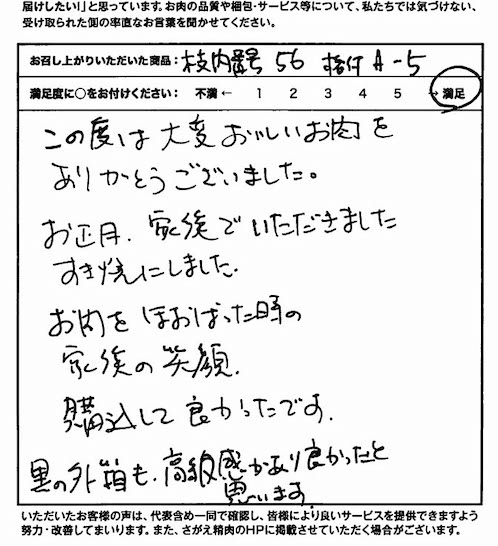 届けしたい!」と思っています。お肉の品質や梱包・サービス等について、私たちでは気づけない、
受け取られた側の率直なお言葉を聞かせてください。
お召し上がりいただいた商品: 枝肉番号 56 格付 A-5
満足度に○をお付けください: 不満 ← 1 2 3 4 5 → 満足
この度は大変おいしいお肉を
ありがとうございました。
お正月、家族でいただきました
すき焼にしました。
お肉をほおばった時の
家族の笑顔、
購入して良かったです。
黒の外箱も、高級感があり良かったと
思います
いただいたお客様の声は、代表含め一同で確認し、皆様により良いサービスを提供できますよう
努力・改善してまいります。また、さがえ精肉のHPに掲載させていただく場合がございます。